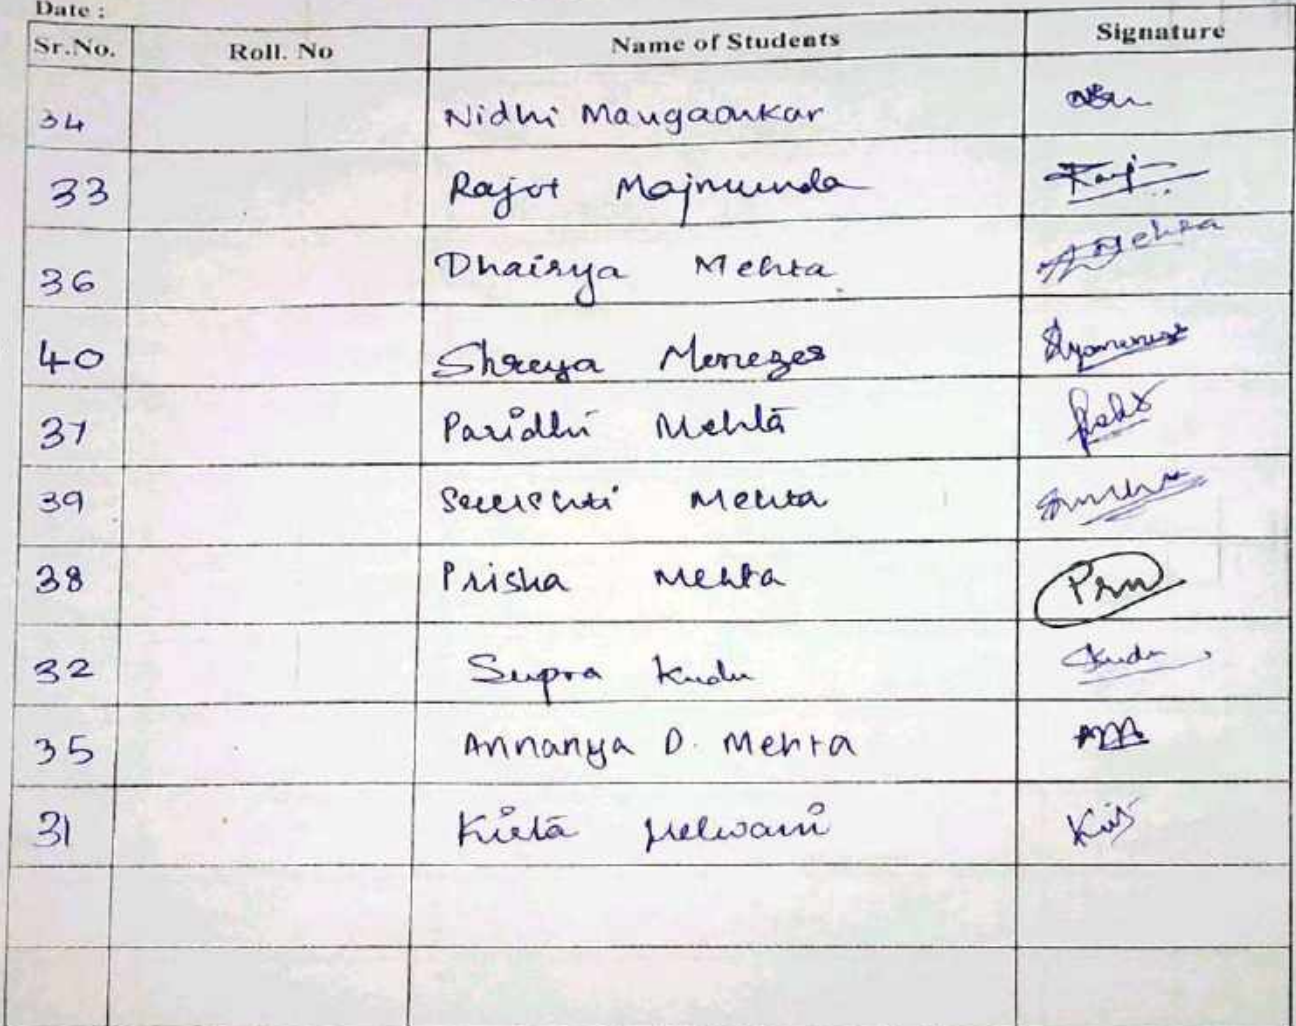 Date :
Sr.No. Roll. No Name of Students Signature
34 Nidhi Maugaonkar
33 Rajot Majmunda
36 Dhairya Mehta Mehta
40 Shreya Menezes
37 Paridhi Mehta
39 Mehta
38 Prisha Mehta Prm
32 Supra Kudu Kudu
35 Annanya D. Mehta AM
31